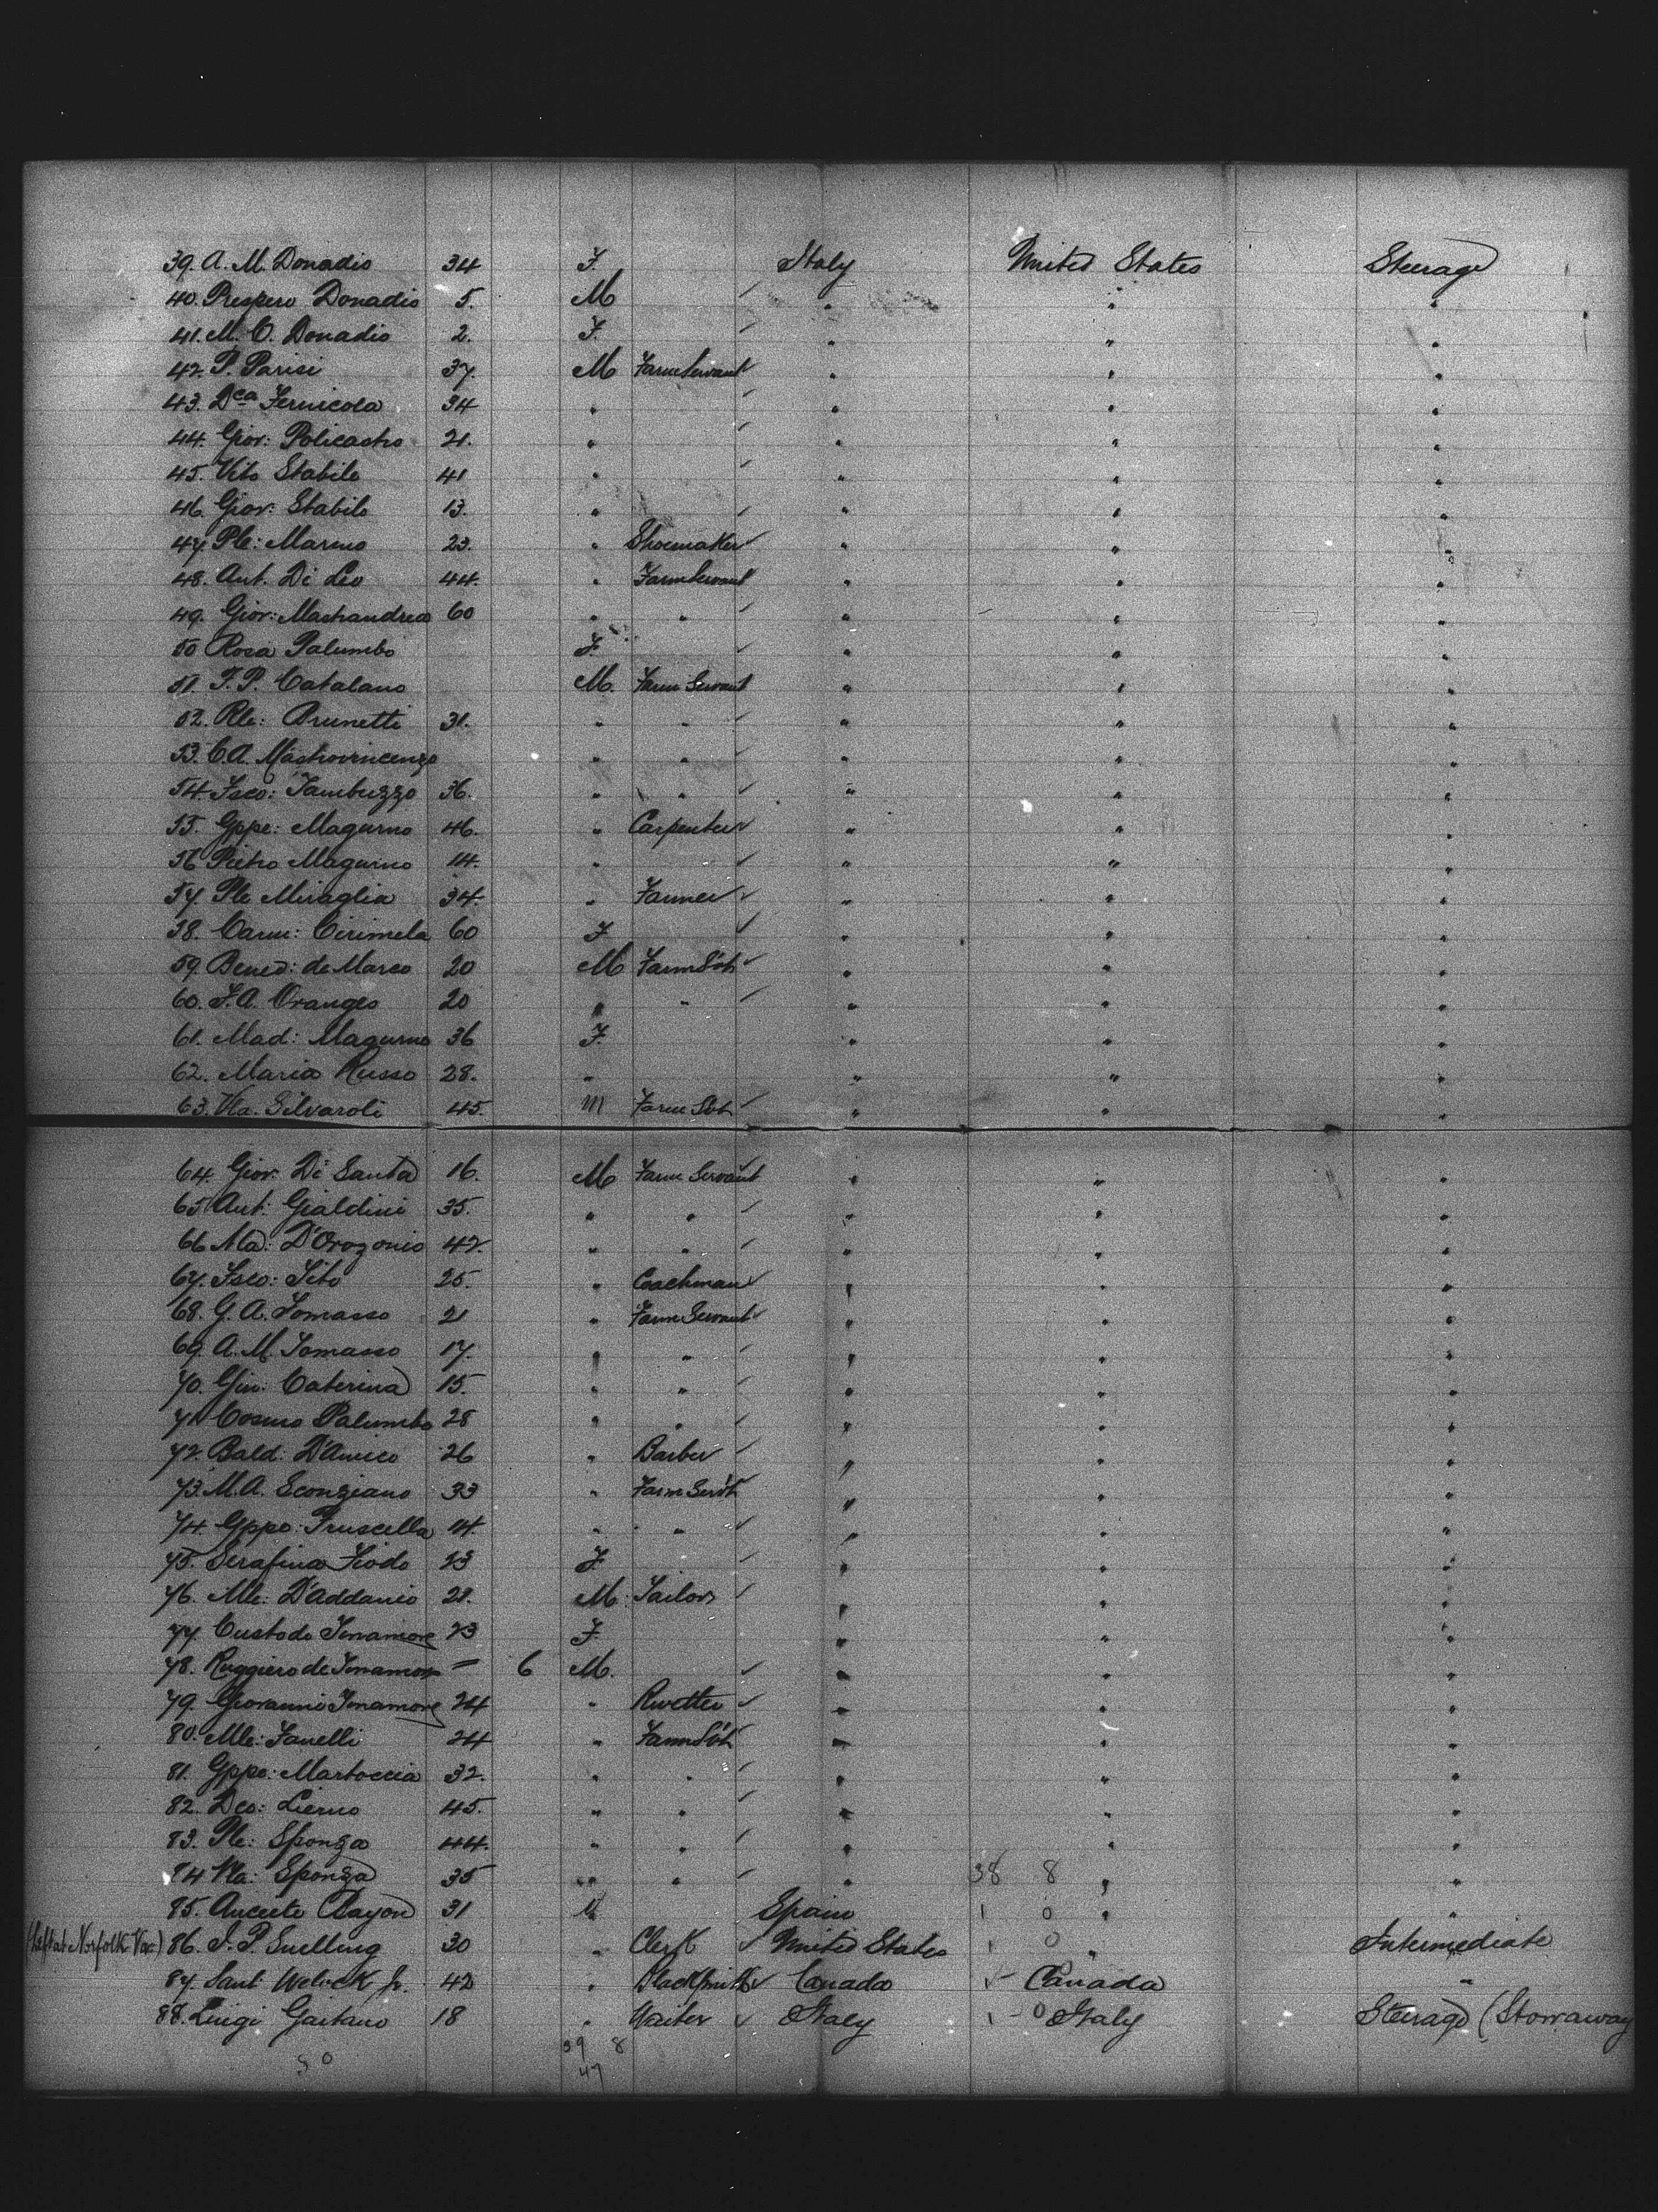 39. A. M. Donadio 34 F. Italy United States Steerage
40. Prospero Donadio 5. M ✓ " " "
41. M. C. Donadio 2. F. ✓ " " "
42. P. Parisi 37. M Farm Servant ✓ " " "
43. Dca Fernicola 34 " ✓ " " "
44. Giov: Policastro 21. " ✓ " " "
45. Vito Stabile 41 " ✓ " " "
46. Giov: Stabile 13. " ✓ " " "
47. Ple: Marino 23. " Shoemaker ✓ " " "
48. Ant. Di Leo 44. " Farm Servant " " "
49. Giov: Mastrandrea 60 " " ✓ " " "
50 Rosa Palumbo F. ✓ " " "
51. F. P. Catalano M. Farm Servant " " "
52. Rle: Brunetti 31. " " ✓ " " "
53. C. A. Mastrovincenzo " " ✓ " " "
54. Fsco: Tambuzzo 36. " " ✓ " " "
55. Gppe: Magurno 46. " Carpenter ✓ " " "
56 Pietro Magurno 14. " ✓ " " "
57. Ple Miraglia 34. " Farmer ✓ " " "
58. Carm: Cirimela 60 F ✓ " " "
59. Bened: de Marco 20 M Farm Svt ✓ " " "
60. F. A. Oranges 20 " " ✓ " " "
61. Mad: Magurno 36 F. " " "
62. Maria Russo 28. " " " "
63. Vla. Silvaroli 45. M Farm Svt ✓ " " "
64. Giov. Di Santa 16. M Farm Servant ✓ " " "
65 Ant: Gialdini 35. " " ✓ " " "
66 Na: D'Orozonio 42. " " ✓ " " "
67. Fsco: Tito 25. " Coachman ✓ " " "
68. G. A. Tomasso 21 " Farm Servant ✓ " " "
69. A. M. Tomasso 17. " " ✓ " " "
70. Gin: Caterina 15. " " ✓ " " "
71. Cosmo Palumbo 28 " " ✓ " " "
72. Bald: D'Amico 26 " Barber ✓ " " "
73. M. A. Sconziano 33 " Farm Servt " " "
74. Gppe: Fruscella 14. " " ✓ " " "
75. Serafina Fiodo 23 F. ✓ " " "
76. Mle: D'Addario 21. M. Tailor ✓ " " "
77. Custode Tinamore 23 F. " " "
78. Ruggiero de Tinamore " 6 M. ✓ " " "
79. Giovanni Tinamore 24 " Rivetter ✓ " " "
80. Mle: Fanelli 24 " Farm Svt " " "
81. Gppe: Martoccia 32. " " ✓ " " "
82. Dco: Lierno 45. " " ✓ " " "
83. Ple: Sponza 44. " " ✓ " " "
84 Na: Sponza 35 " " ✓ " 38 8 " "
85. Aniceto Bayon 31 M Spain 1 0 " "
(Left at Norfolk Va:) 86. J. P. Snelling 30 " Clerk ✓ United States 1 0 " Intermediate
87. Saml Welock Jr. 42 " Blacksmith ✓ Canada ✓ Canada "
88. Luigi Gaetano 18 " Waiter ✓ Italy 1 - 0 Italy Steerage (Stowaway
39 8
50 47